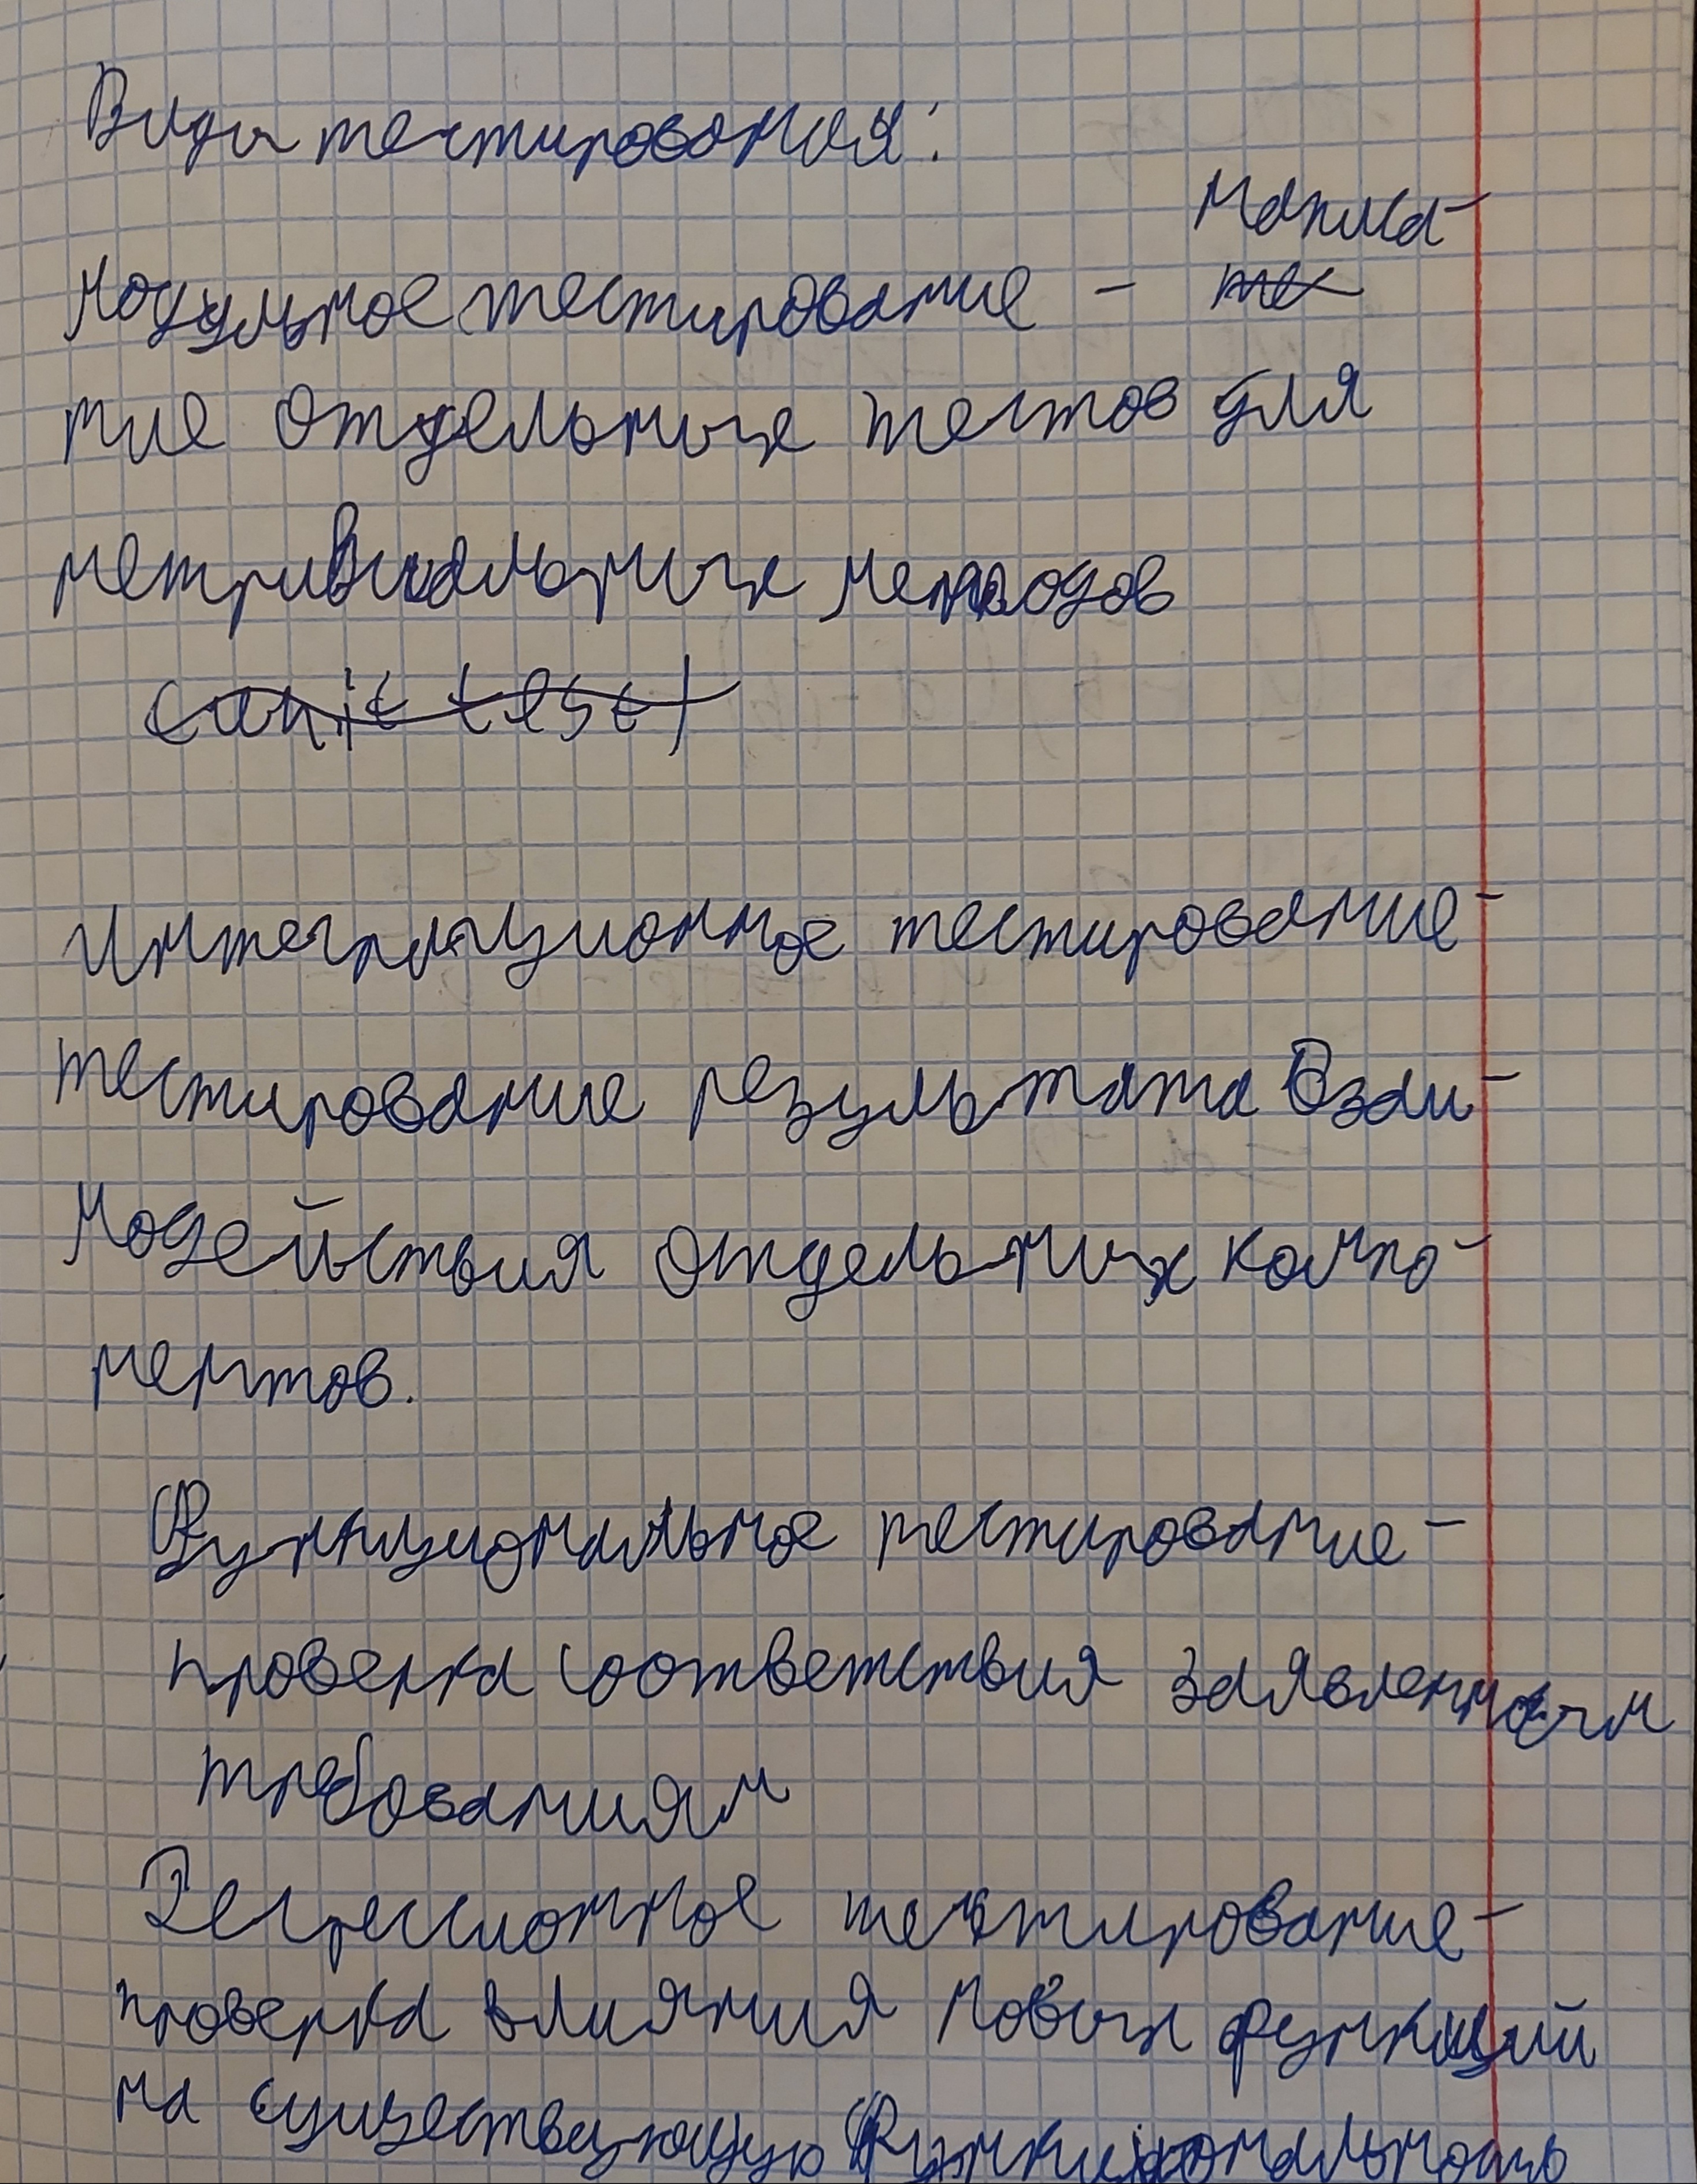 Виды тестирования:
Написа-
Модульное тестирование - те
ние отдельных тестов для
нетривиальных методов
(unit test)
Интеграционное тестирование -
тестирование результата взаи-
модействия отдельных компо-
нентов.
Функциональное тестирование -
проверка соответствия заявленным
требованиям
Регрессионное тестирование -
проверка влияния новых функций
на существующую функциональность